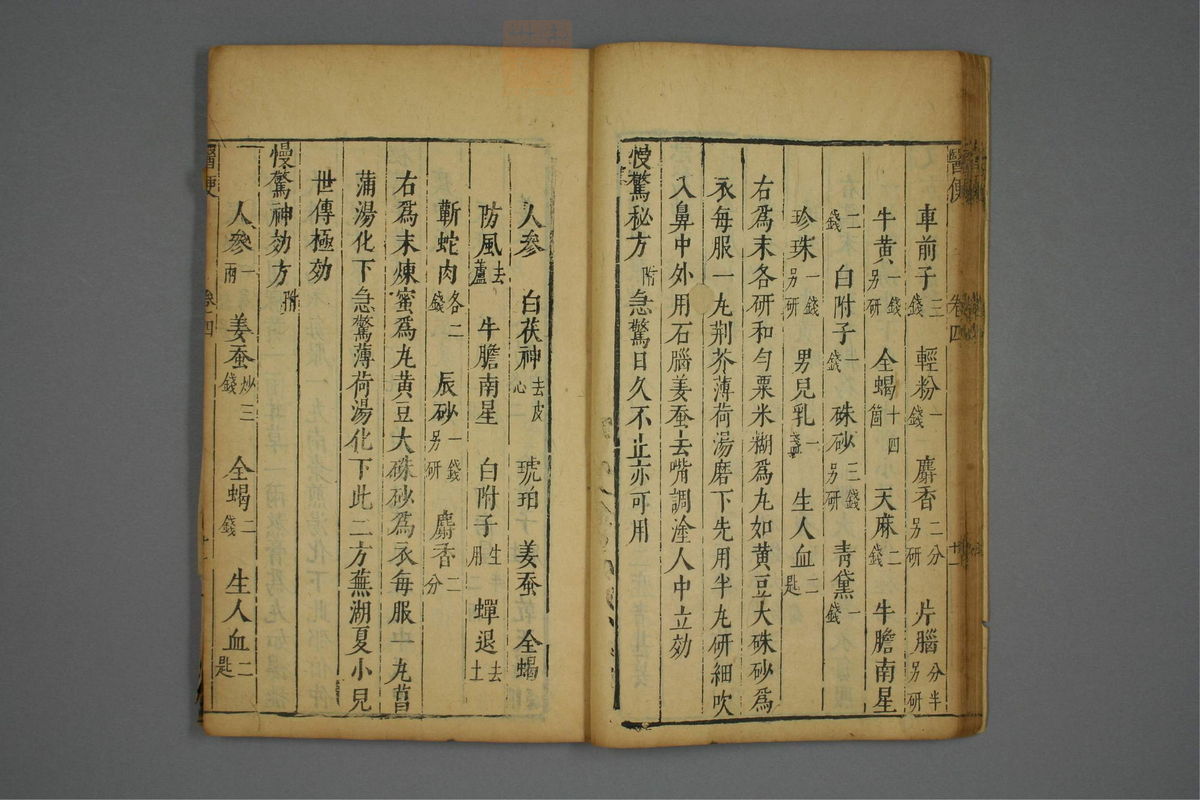 醫便 卷四 十一
車前子三錢 輕粉一錢 麝香二分另研 片腦分半另研
牛黃一錢另研 全蝎十四箇 天麻二錢 牛膽南星
二錢 白附子一錢 硃砂三錢另研 青黛一錢
珍珠一錢另研 男兒乳一盞 生人血二匙
右為末各研和勻粟米糊為丸如黃豆大硃砂為
衣每服一丸荆芥薄荷湯磨下先用半丸研細吹
入鼻中外用石腦姜蚕去嘴調塗人中立効
慢驚秘方附 急驚日久不止亦可用
人參 白茯神去皮心 琥珀 姜蚕 全蝎
防風去蘆 牛膽南星 白附子生用 蟬退去土
蘄蛇肉各二錢 辰砂一錢另研 麝香二分
右爲末煉蜜爲丸黃豆大硃砂爲衣每服一丸菖
蒲湯化下急驚薄荷湯化下此二方蕪湖夏小兒
世傳極効
慢驚神効方附
人參一兩 姜蚕炒三錢 全蝎二錢 生人血二匙
醫便 卷之四